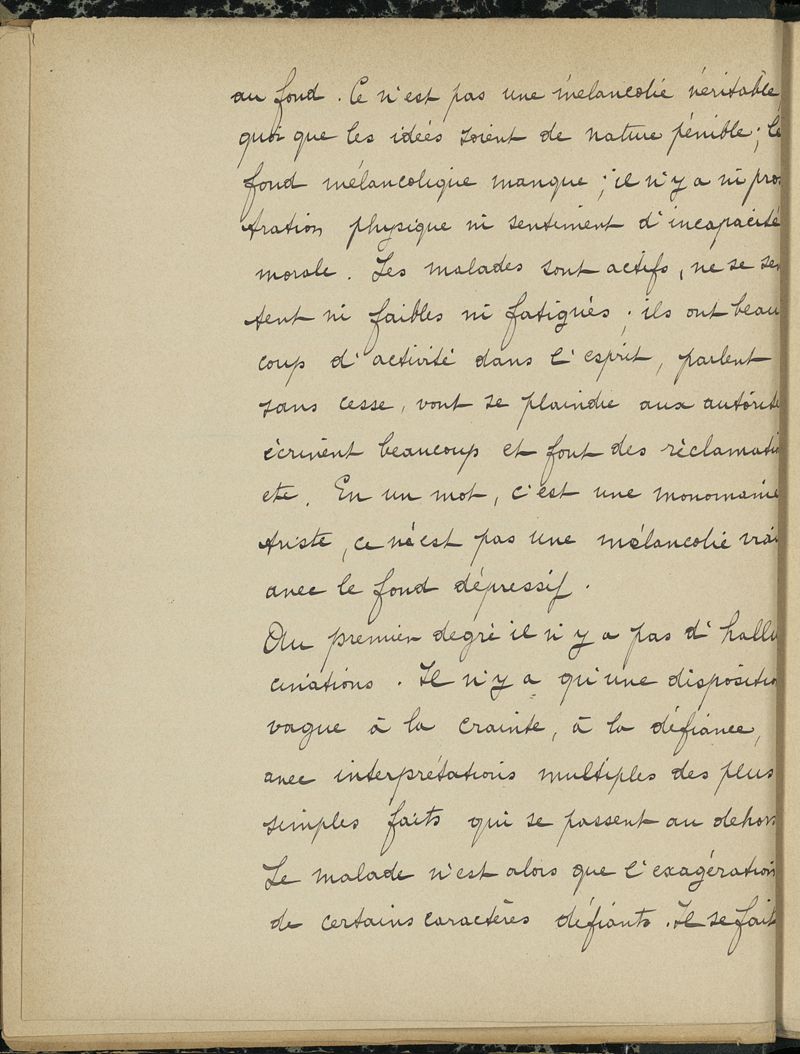 au fond. Ce n'est pas une mélancolie véritable,
quoi que les idées soient de nature pénible; le
fond mélancolique manque; il n'y a ni pros
tration physique ni sentiment d'incapacité
morale. Les malades sont actifs, ne se sen
tent ni faibles ni fatigués; ils ont beau
coup d'activité dans l'esprit, parlent
sans cesse, vont se plaindre aux autorité
écrivent beaucoup et font des réclamatio
etc. En un mot, c'est une monomanie
triste, ce n'est pas une mélancolie vrai
avec le fond dépressif.
Au premier degré il n'y a pas d'hallu
cinations. Il n'y a qu'une dispositio
vague à la crainte, à la défiance,
avec interprétations multiples des plus
simples faits qui se passent au dehors
Le malade n'est alors que l'exagération
de certains caractères défiants. Il se fait